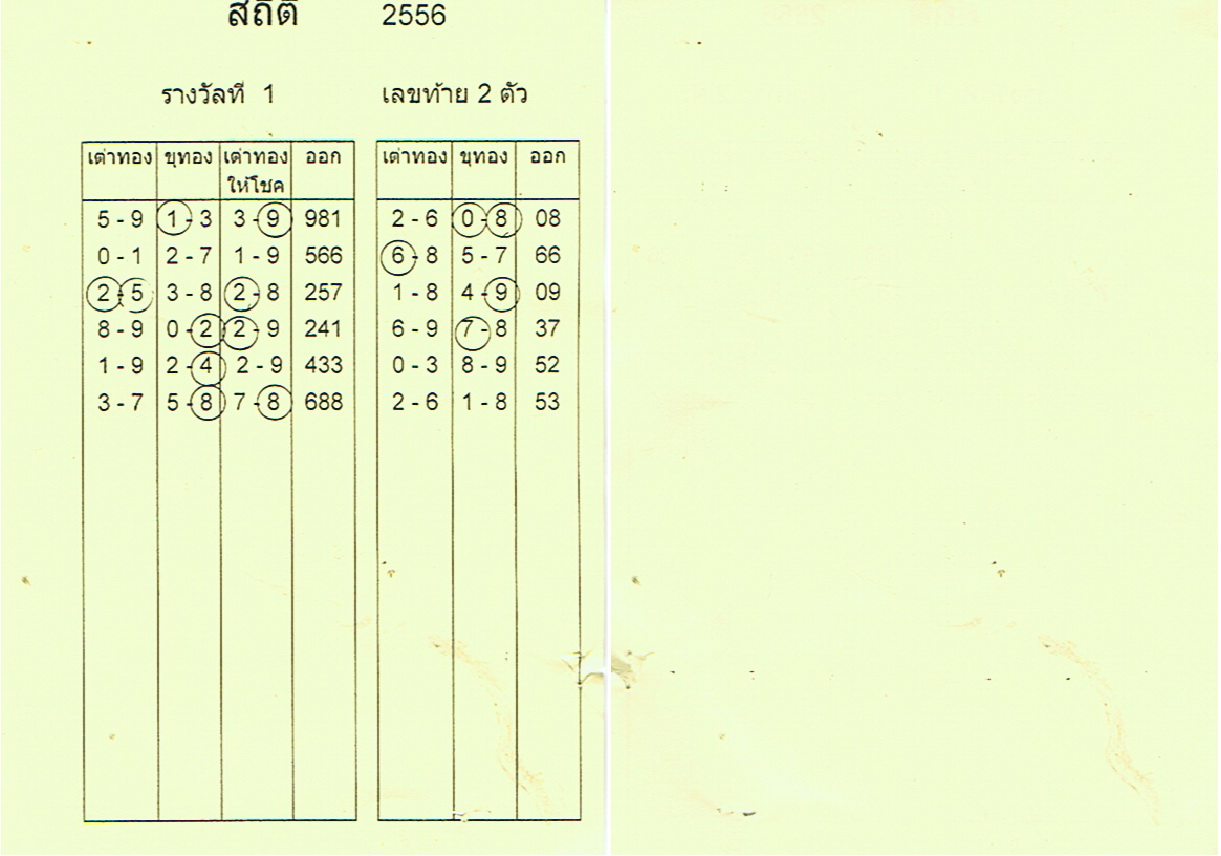 สถิติ 2556
รางวัลที่ 1 เลขท้าย 2 ตัว
เต่าทอง ขุทอง เต่าทอง ออก เต่าทอง ขุทอง ออก
ให้โชค
5 - 9 1 - 3 3 - 9 981 2 - 6 0 - 8 08
0 - 1 2 - 7 1 - 9 566 6 - 8 5 - 7 66
2 - 5 3 - 8 2 - 8 257 1 - 8 4 - 9 09
8 - 9 0 - 2 2 - 9 241 6 - 9 7 - 8 37
1 - 9 2 - 4 2 - 9 433 0 - 3 8 - 9 52
3 - 7 5 - 8 7 - 8 688 2 - 6 1 - 8 53